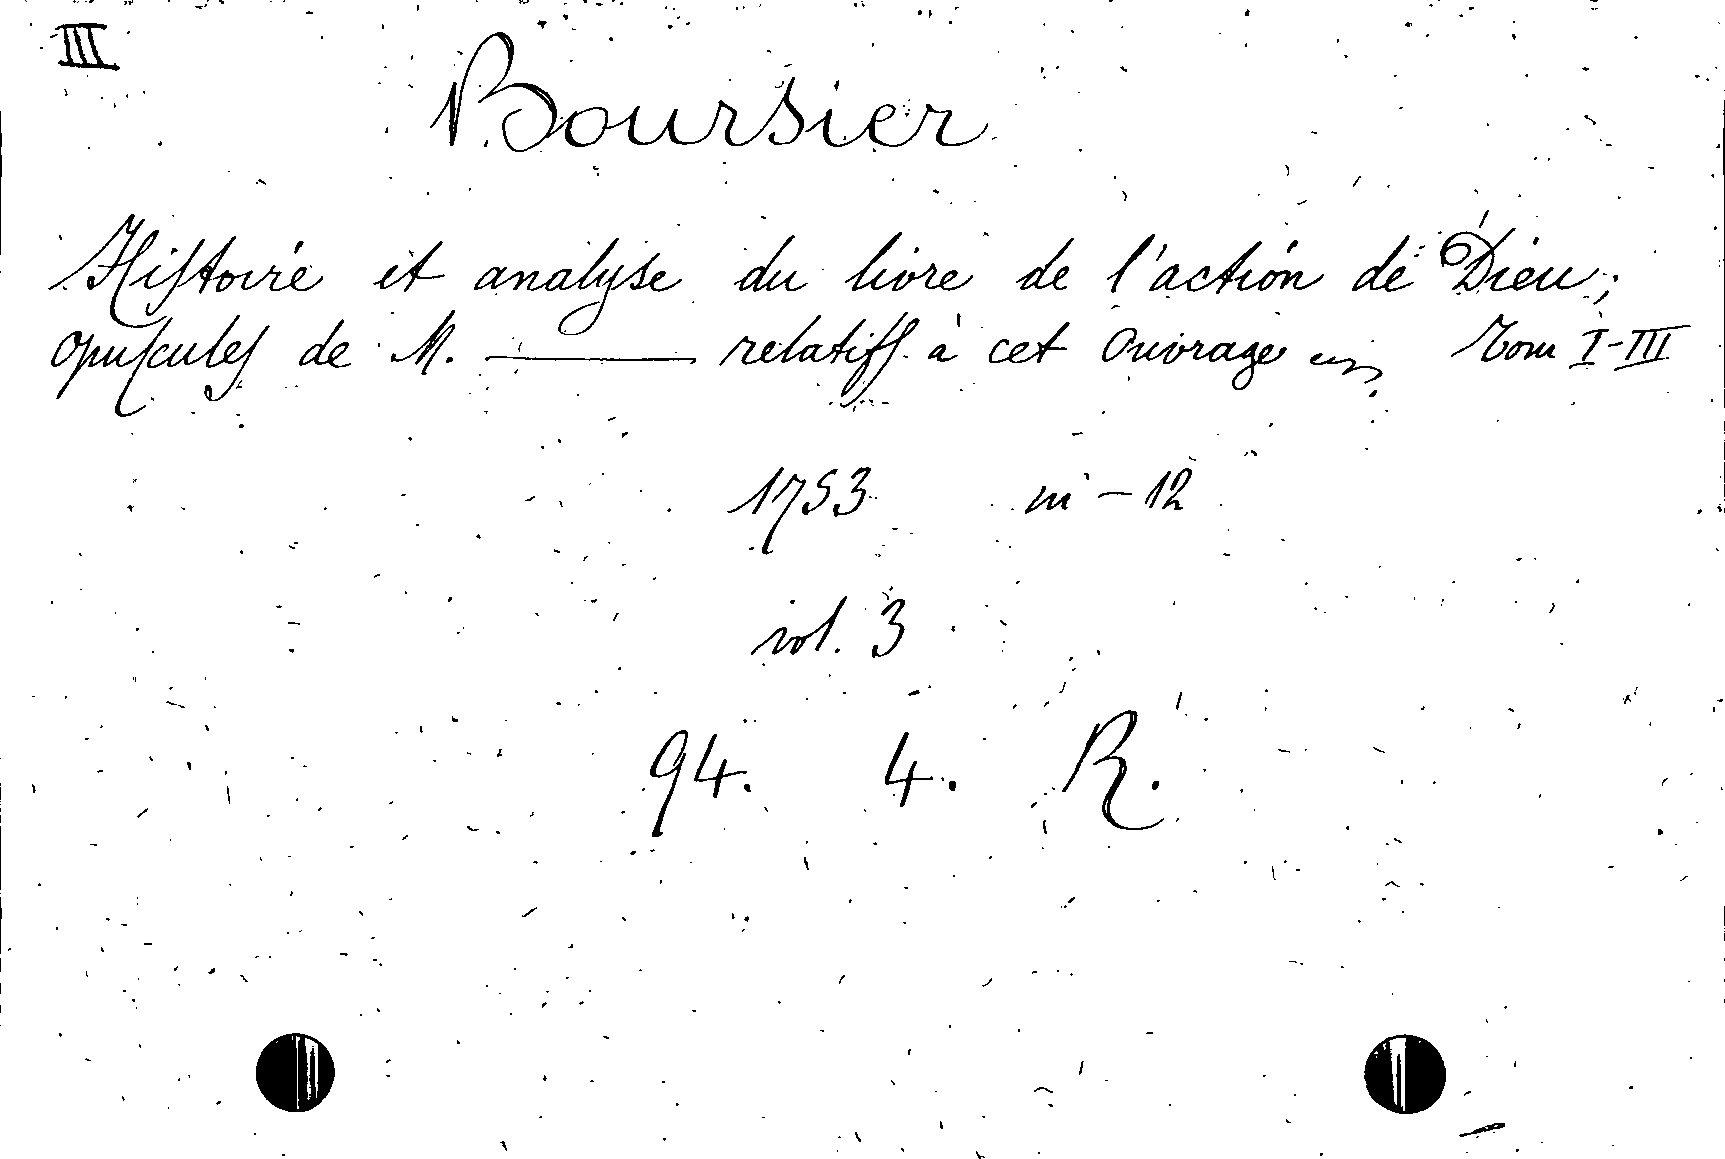 III
Boursier
Histoire et analyse du livre de l'action de Dieu;
opuscules de M. ——— relatifs à cet ouvrage Tom I-III
1753 in-12
vol. 3
94. 4. R.